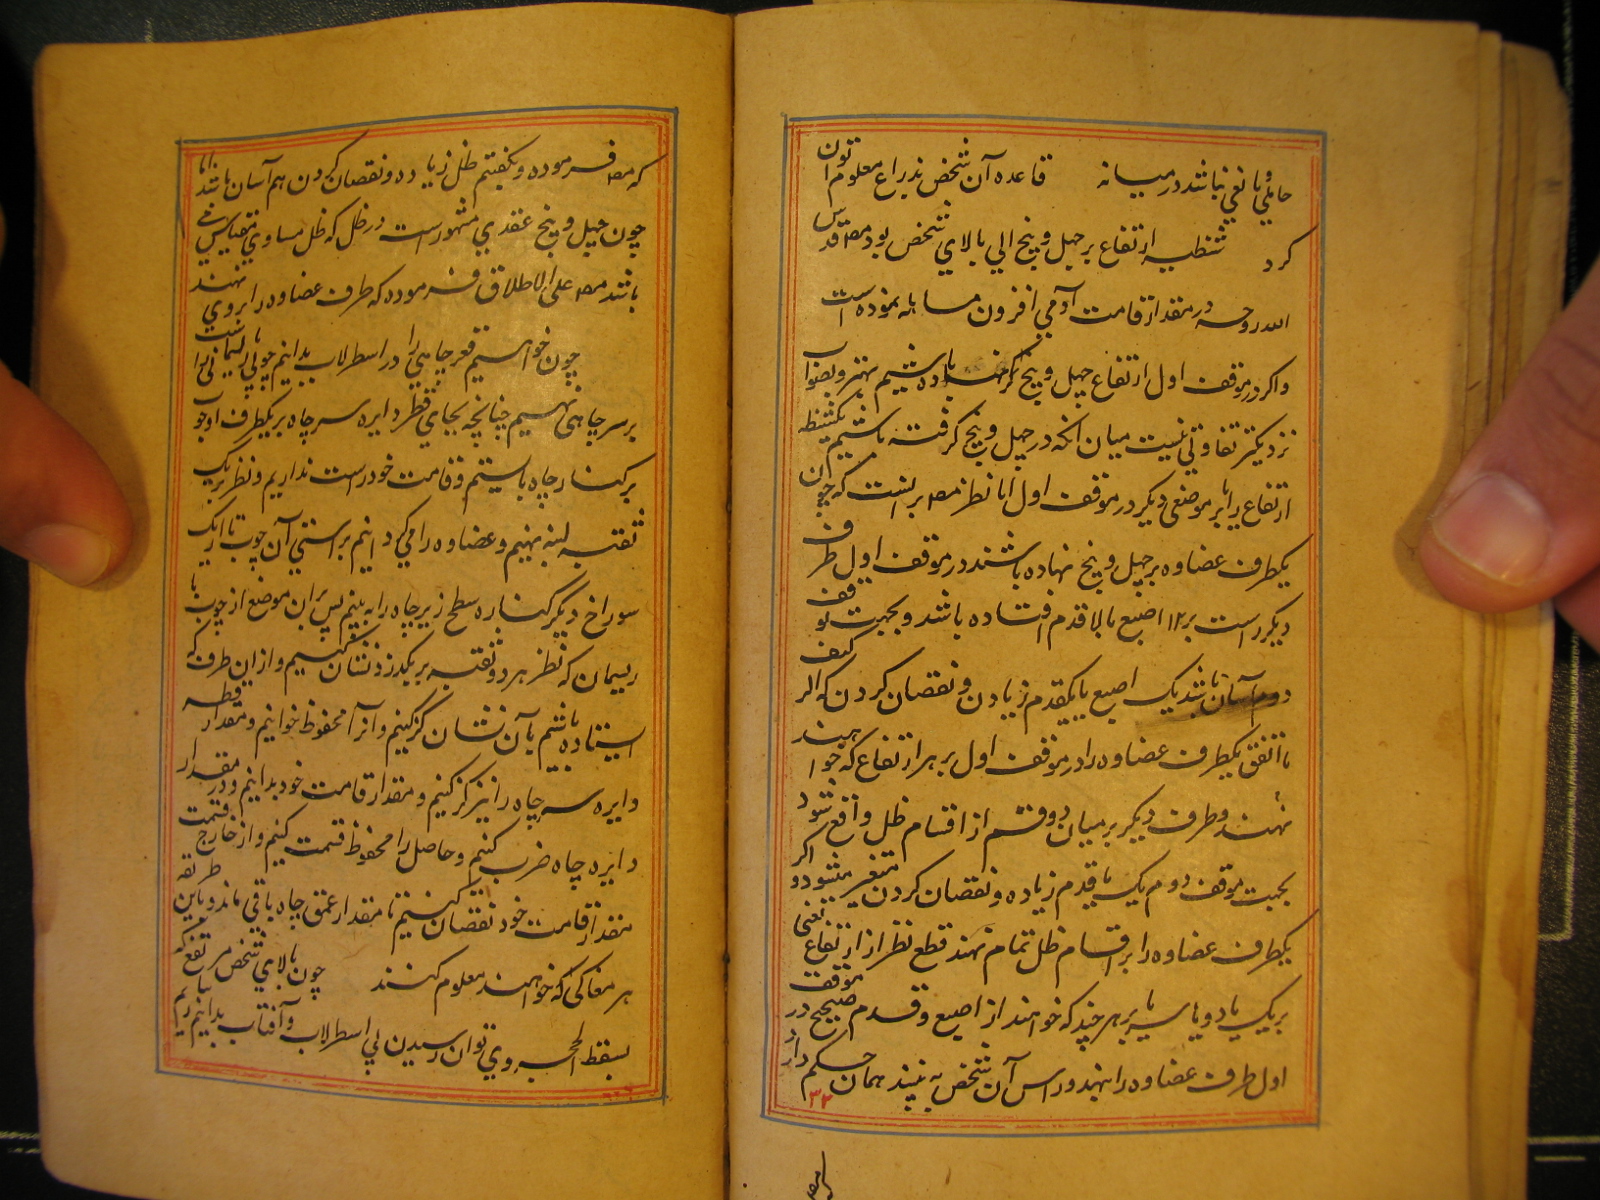 حایلی و مانعی نباشد در میانه قاعده آن شخص بذراع معلوم توان
کرد شظیه ارتفاع بر چهل و پنج الی بالای شخص بود مص قدس
الله روحه در مقدار قامت آدمی افزون مسابله نموده است
و اگر در موقف اول ارتفاع چهل و پنج گرفته باشیم بهتر و بصواب
نزدیکتر تفاوتی نیست میان آنکه در چهل و پنج گرفته باشیم یکشظیه
ارتفاع را یا بر موضعی دیگر در موقف اول اما نظر مص بر اینست که چون
یکطرف عضاوه بر چهل و پنج نهاده باشند در موقف اول طرف
دیگر راست بر ۱۲ اصبع یا بالا قدم افتاده باشد و بجهت موقف
دوم آسان باشد یک اصبع یا یکقدم زیادن و نقصان کردن که الر کیف
ما اتفق یکطرف عضاوه را در موقف اول بر هر ارتفاع که خواهند
نهند و طرف دیگر بر میان دو قسم از اقسام ظل واقع شود
بجهت موقف دوم یک یا قدم زیاده و نقصان کردن متعسر میشود و اگر
یکطرف عضاوه را بر اقسام ظل تمام نهند قطع نظر از ارتفاع یعنی
بر یک یا دو یا سه یا بر هر چند که خواهند از اصبع و قدم صحیح در موقف
اول طرف عضاوه را نهند و راس آن شخص به بینند همان حکم دارد
۳۲
که مص فرموده و بگفتیم ظل زیاده و نقصان کردن هم آسان باشد اما
چون چهل و پنج عقدی مشهور است در ظل که ظل مساوی مقیاس
باشد مص علی الاطلاق فرموده که طرف عضاوه را بروی نهند
چون خواهیم قعر چاهی را در اسطرلاب بدانیم چوبی یا ریسمانی راست
بر سر چاهی نهیم چنانچه بجای قطر دایره سر چاه بر یکطرف او چوب
بر کنار چاه باستیم و قامت خود راست نداریم و نظر بر یک
ثقبه لبنه نهیم و عضاوه را می گردانیم براستی آن چوب تا از یک
سوراخ دیگر کناره سطح زیر چاه را به بینم پس بران موضع از چوب یا
ریسمان که نظر هر دو ثقبه بر یکدرزد نشان کنیم و ازین طرف که
استاده باشیم تا آن نشان گز کنیم و آنرا محفوظ خوانیم و مقدار قطر
دایره سر چاه را نیز گز کنیم و مقدار قامت خود بدانیم و در مقدار
دایره چاه ضرب کنیم و حاصل را بر محفوظ قسمت کنیم و از خارج قسمت
مقدار قامت خود نقصان کنیم تا مقدار عمق چاه باقی ماند و باین طریقه
هر مغاکی که خواهند معلوم کنند چون بالای شخص مرتفع که
بسقط الحجر وی توان رسیدن بی اسطرلاب و آفتاب بدانیم